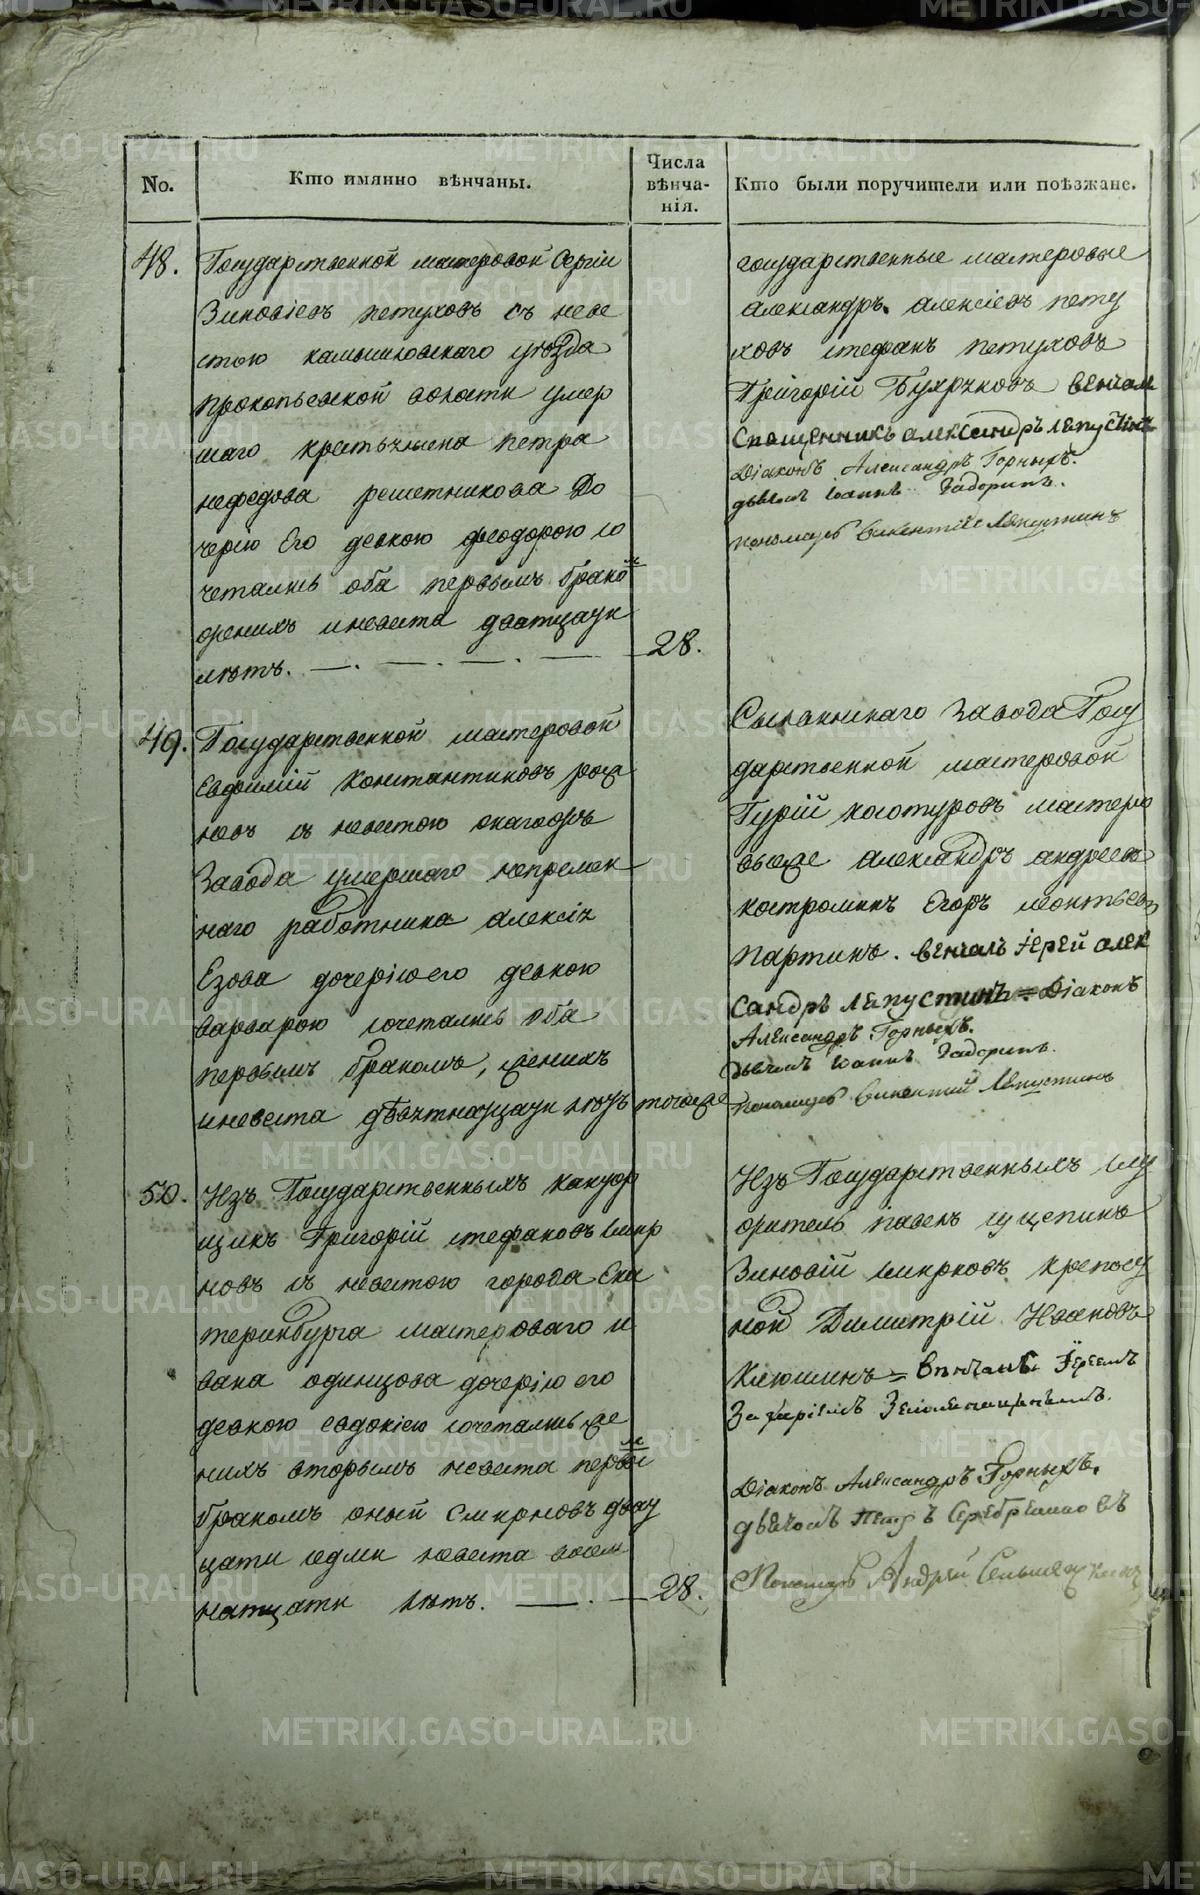 No.
Кто имянно вѣнчаны.
Числа
вѣнча-
нія.
Кто были поручители или поѣзжане.
48.
Государственной мастеровой Сергiи
Зиновіевъ петуховъ съ неве
стою камышловскаго уѣзда
прокопьевской волости умер
шаго крестьянина петра
нефедова решетникова до
черію Его девкою феодорою со
четались оба первымъ брако
м
женихъ и невеста дватцати
лѣтъ.
28.
государственные мастеровые
александръ алексіевъ пету
ховъ стефанъ петуховъ
Григорій венчал
Священникъ александръ лапустинъ
Діаконъ Александръ Горныхъ.
дьячекъ Іоаннъ Задоринъ.
пономарь викентій Лапустинъ
49.
Государственной мастеровой
Евфимій Константиновъ
невъ съ невестою
Завода умершаго непремен
наго работника алексія
Езова дочерію его девкою
варварою сочетались оба
первымъ бракомъ, женихъ
и невеста лѣтъ
тогоже
Завода Госу
дарственной мастеровой
Гурій мастеро
выеже александръ андреевъ
костроминъ Егоръ леонтьевъ
партинъ. венчалъ Іерей алек
сандръ лапустинъ = Діаконъ
Александръ Горныхъ.
дьячекъ Іоаннъ Задоринъ.
пономарь викентій Лапустинъ
50.
Изъ Государственныхъ канцор
щикъ Григорій стефановъ смир
новъ съ невестою города Ека
теринбурга мастероваго и
вана одинцова дочерію его
девкою евдокіею сочетались же
нихъ вторымъ невеста первы
м
бракомъ оный Смирновъ двад
цати седми невеста восем
натцати лѣтъ.
28.
Изъ Государственныхъ слу
житель павелъ
Зиновій смирновъ крепос
ной Димитрій Ивановъ
Клюшинъ = Венчанъ Іереемъ
Захаріемъ
Діаконъ Александръ Горныхъ.
дьячекъ Петръ Серебренниковъ
Пономарь Андрей
METRIKI.GASO-URAL.RU